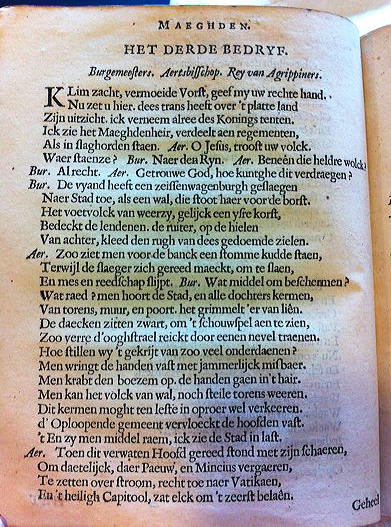 MAEGHDEN.
HET DERDE BEDRYF.
Burgemeesters. Aertsbisschop. Rey van Agrippiners.
KLim zacht, vermoeide Vorst, geef my uw rechte hand.
Nu zet u hier. dees trans heeft over 't platte land
Zijn uitzicht. ick verneem alree des Konings tenten.
Ick zie het Maeghdenheir, verdeelt aen regementen,
Als in slaghorden staen. Aer. O Jesus, troost uw volck.
Waer staenze? Bur. Naer den Ryn. Aer. Beneên die heldre wolck?
Bur. Al recht. Aer. Getrouwe God, hoe kunt ghe dit verdraegen?
Bur. De vyand heeft een zeissenwagenburgh geslaegen
Naer Stad toe, als een wal, die stoot haer voor de borst.
Het voetvolck van weerzy, gelijck een ysre korst,
Bedeckt de lendenen. de ruiter, op de hielen
Van achter, kleed den rugh van dees gedoemde zielen.
Aer. Zoo ziet men voor de banck een stomme kudde staen,
Terwijl de slaeger zich gereed maeckt, om te slaen,
En mes en reedschap slijpt. Bur. Wat middel om beschermen?
Wat raed? men hoort de Stad, en alle dochters kermen,
Van torens, muur, en poort. het grimmelt 'er van liên.
De daecken zitten zwart, om 't schouwspel aen te zien,
Zoo verre d'ooghstrael reickt door eenen nevel traenen.
Hoe stillen wy 't gekrijt van zoo veel onderdaenen?
Men wringt de handen vast met jammerlijck misbaer.
Men krabt den boezem op. de handen gaen in't hair.
Men kan het volck van wal, noch steile torens weeren.
Dit kermen moght ten leste in oproer wel verkeeren.
d'Oploopende gemeent vervloeckt de hoofden vast.
't En zy men middel raem, ick zie de Stad in last.
Aer. Toen dit verwaten Hoofd gereed stond met zijn schaeren,
Om daetelijck, daer Paeuw, en Mincius vergaeren,
Te zetten over stroom, recht toe naer Vatikaen,
En 't heiligh Capitool, zat elck om 't zeerst belaên.
Geheel